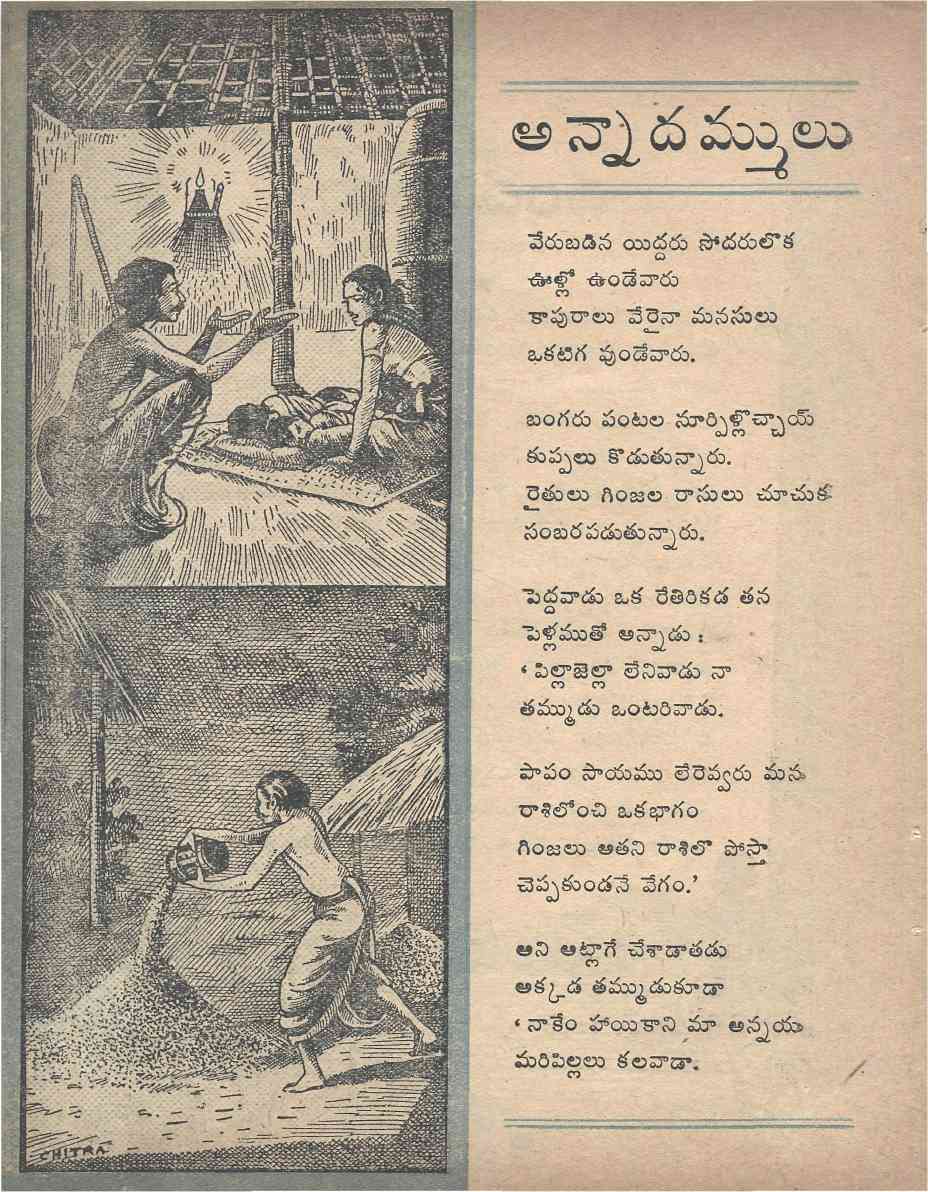 అన్నాదమ్ములు
వేరుబడిన యిద్దరు సోదరులొక
ఊళ్లో ఉండేవారు
కాపురాలు వేరైనా మనసులు
ఒకటిగ వుండేవారు.
బంగరు పంటల నూర్పిళ్లొచ్చాయ్
కుప్పలు కొడుతున్నారు.
రైతులు గింజల రాసులు చూచుక
సంబరపడుతున్నారు.
పెద్దవాడు ఒక రేతిరికడ తన
పెళ్లముతో అన్నాడు :
‘ పిల్లాజెల్లా లేనివాడు నా
తమ్ముడు ఒంటరివాడు.
పాపం సాయము లేరెవ్వరు మన
రాశిలోంచి ఒకభాగం
గింజలు ఆతని రాశిలొ పోస్తా
చెప్పకుండనే వేగం.’
అని ఆట్లాగే చేశాడాతడు
అక్కడ తమ్ముడుకూడా
‘ నాకేం హాయికాని మా అన్నయ
మరిపిల్లలు కలవాడా.
CHITRA